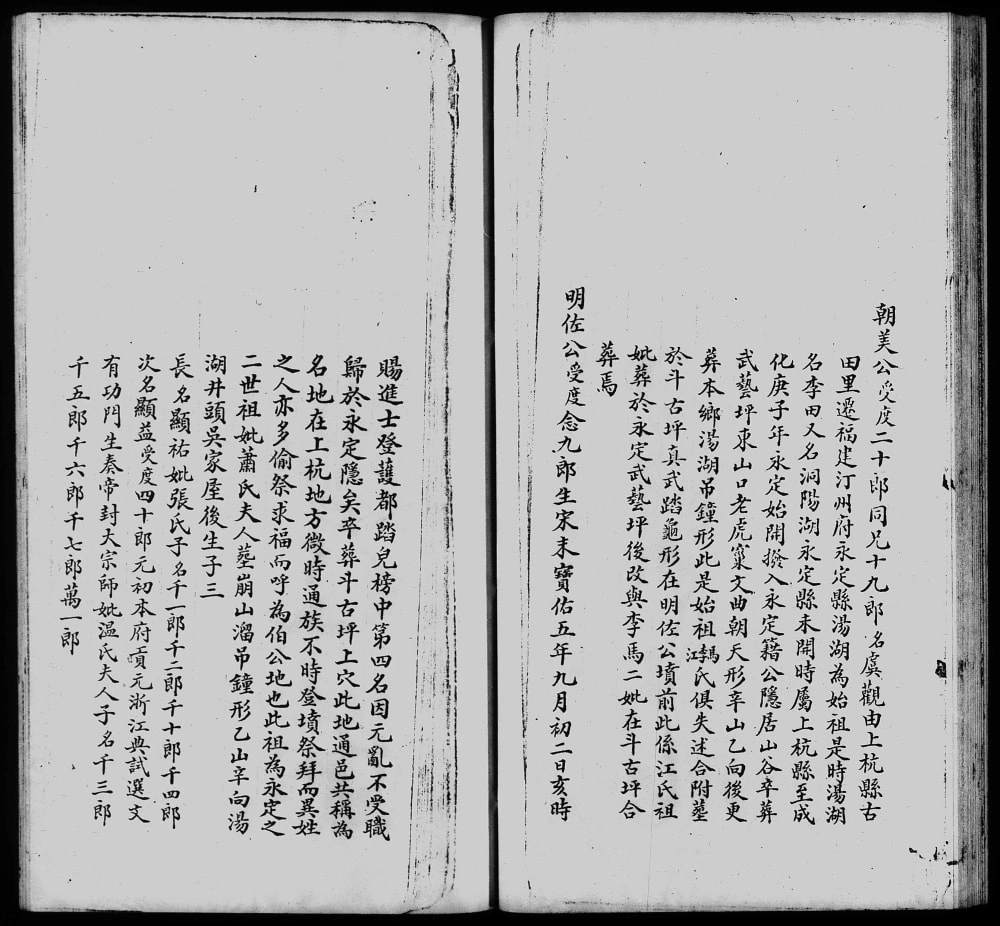 朝美公受度二十郎同兄十九郎名虞觀由上杭縣古
田里遷福建汀州府永定縣湯湖為始祖是時湯湖
名李田又名洞陽湖永定縣未開時屬上杭縣至成
化庚子年永定始開撥入永定籍公隱居山谷卒葬
武藝坪東山口老虎窠文曲朝天形辛山乙向後更
葬本鄉湯湖吊鐘形此是始祖馬李江氏俱失述合附墓
於斗古坪真武踏龜形在明佐公墳前此係江氏祖
妣葬於永定武藝坪後改與李馬二妣在斗古坪合
葬焉
明佐公受度念九郎生宋末寶佑五年九月初二日亥時
賜進士登護都踏兒榜中第四名因元亂不受職
歸於永定隱矣卒葬斗古坪上穴此地通邑共稱為
名地在上杭地方微時通族不時登墳祭拜而異姓
之人亦多偷祭求福而呼為伯公地也此祖為永定之
二世祖妣蕭氏夫人塟崩山溜吊鐘形乙山辛向湯
湖井頭吳家屋後生子三
長名顯祐妣張氏子名千一郎千二郎千十郎千四郎
次名顯益受度四十郎元初本府貢元浙江典試選文
有功門生奏帝封大宗師妣温氏夫人子名千三郎
千五郎千六郎千七郎萬一郎